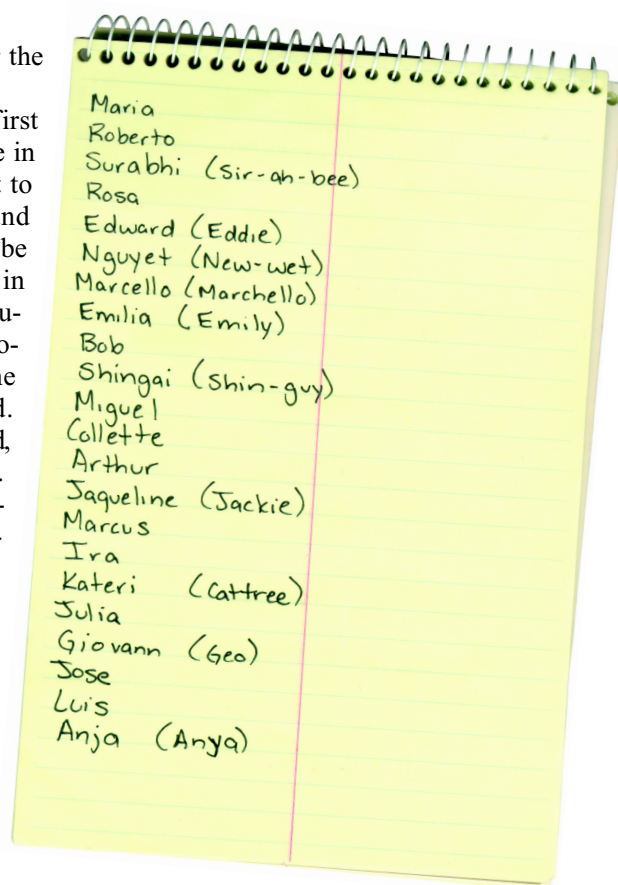 the
first
e in
t to
nd
be
in
u-
o-
ne
d.
d,
.
-
.
Maria
Roberto
Surabhi (Sir-ah-bee)
Rosa
Edward (Eddie)
Nguyet (New-wet)
Marcello (Marchello)
Emilia (Emily)
Bob
Shingai (Shin-guy)
Miguel
Collette
Arthur
Jaqueline (Jackie)
Marcus
Ira
Kateri (Cattree)
Julia
Giovann (Geo)
Jose
Luis
Anja (Anya)